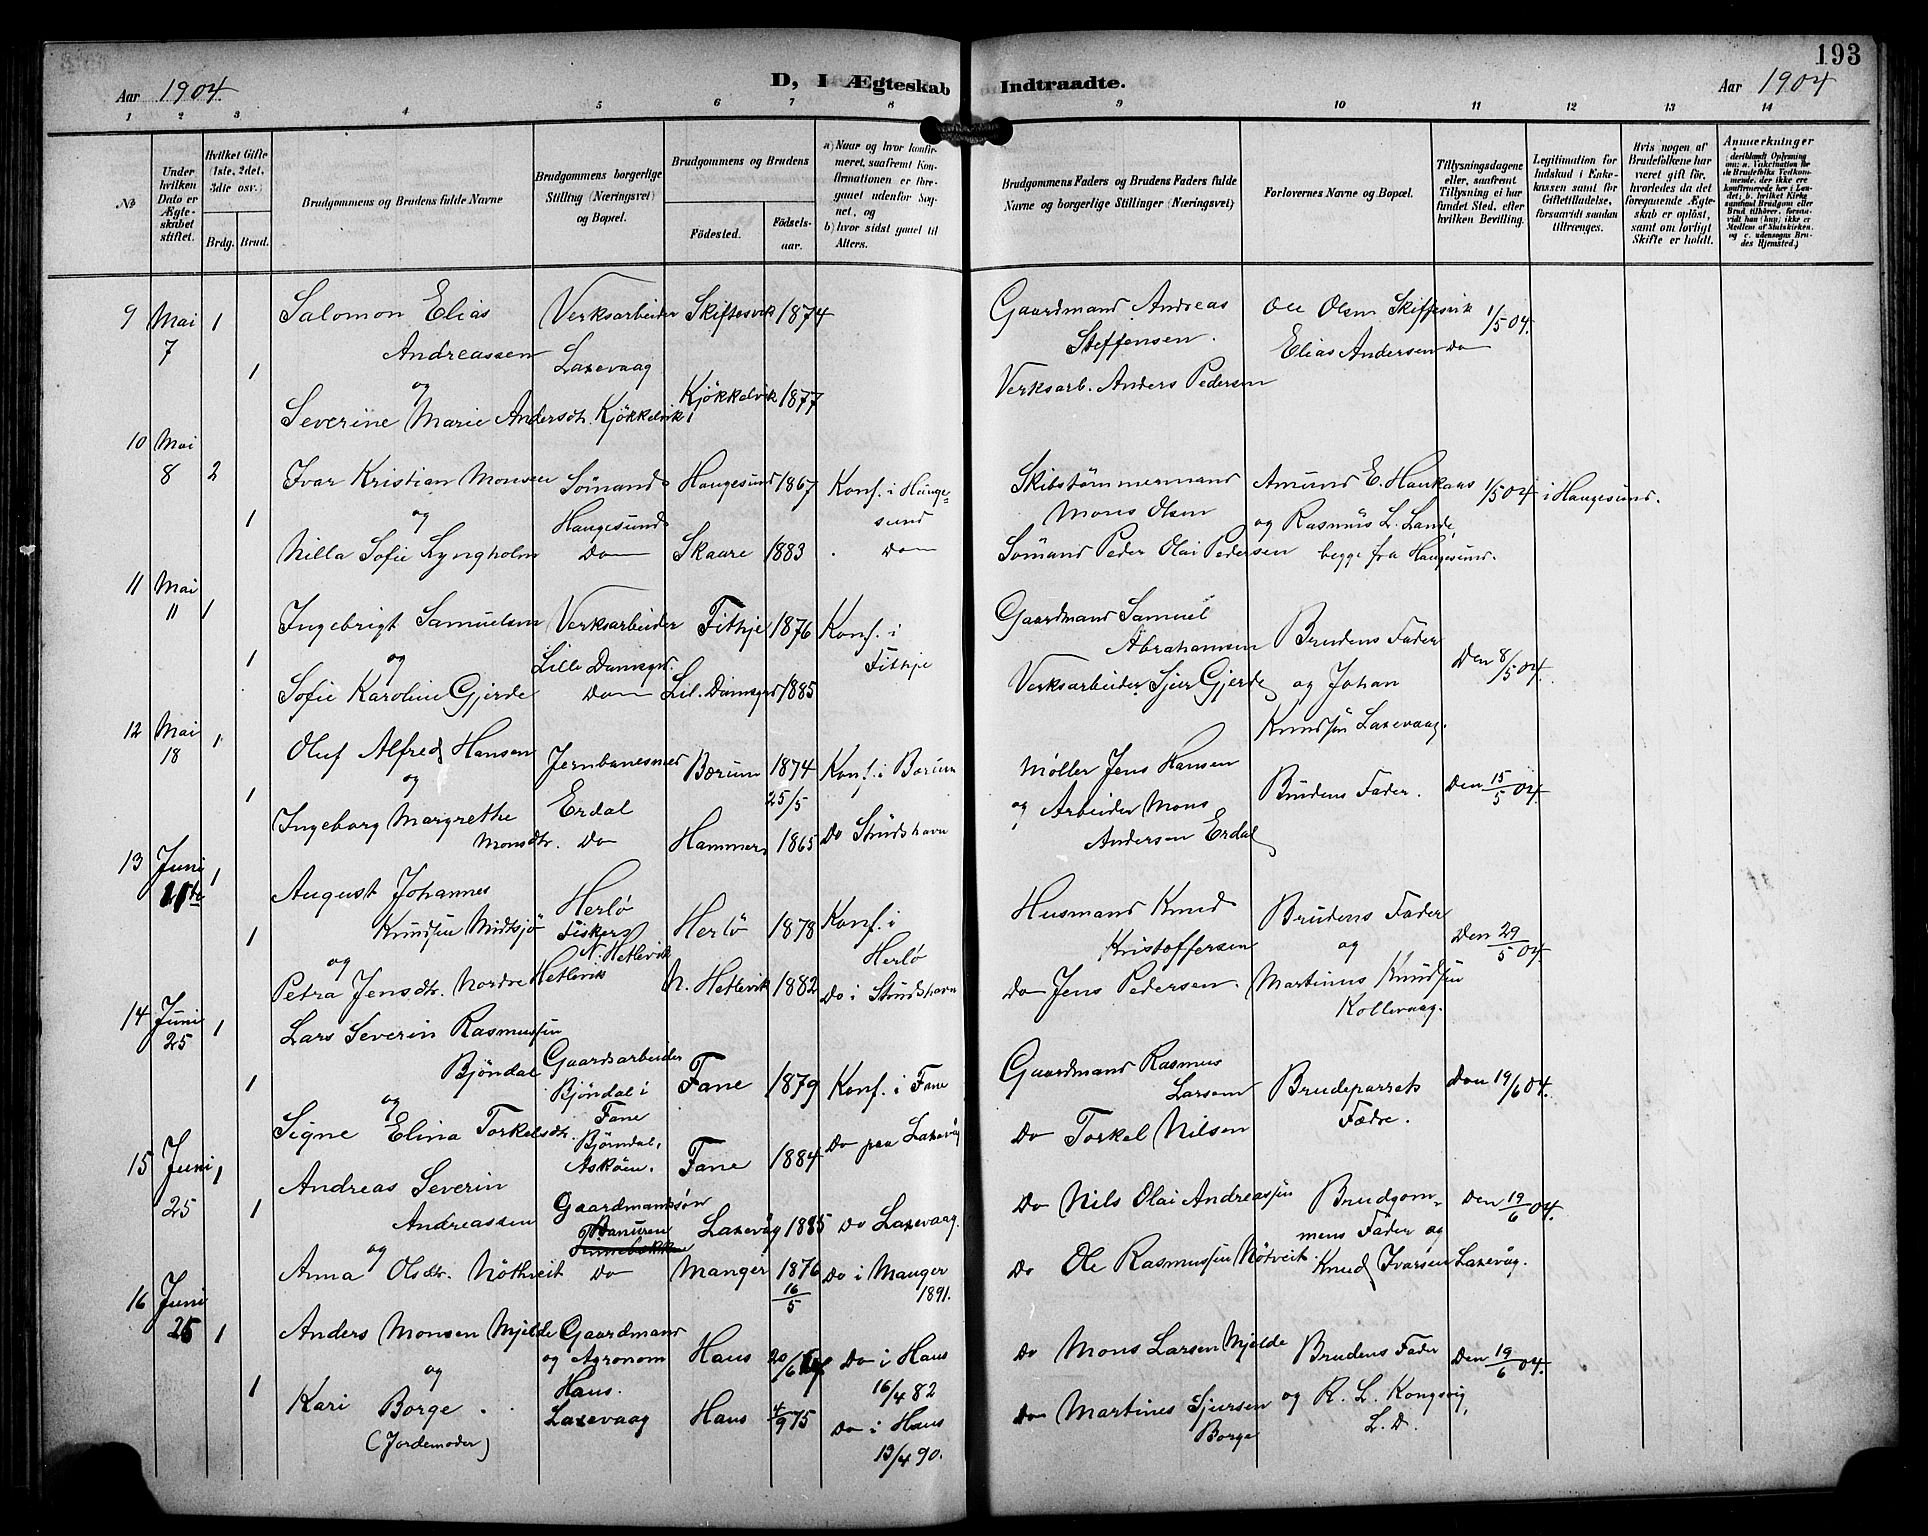 193
Aar 1904.
D, I Ægteskab Indtraadte.
Aar 1904
1 2 3 4 5 6 7 8 9 10 11 12 13 14
No
Under hvilken Dato er Ægteskabet stiftet.
Hvilket Gifte (1ste, 2det, 3die osv.)
Brdg. Brud.
Brudgommens og Brudens fulde Navne
Brudgommens borgerlige Stilling (Næringsvei) og Bopæl.
Brudgommens og Brudens
Fødested.
Fødselsaar.
a) Naar og hvor konfirmeret, saafremt Konfirmationen er foregaaet udenfor Sognet, og
b) hvor sidst gaaet til Alters.
Brudgommens Faders og Brudens Faders fulde Navne og borgerlige Stillinger (Næringsvei)
Forlovernes Navne og Bopæl.
Tillysningsdagene eller, saafremt Tillysning ei har fundet Sted, efter hvilken Bevilling.
Legitimation for Indskud i Enkekassen samt for Giftetilladelse, forsaavidt saadan tiltrænges.
Hvis nogen af Brudefolkene har været gift før, hvorledes da det foregaaende Ægteskab er opløst, samt om lovligt Skifte er holdt.
Anmærkninger
(deriblandt Oplysning om: a. Vakcination for de Brudefolks Vedkommende, der ikke ere konfirmerede her i Landet; b. hvilket Kirkesamfund Brudgom eller Brud tilhører, forsaavidt han (hun) ikke er Medlem af Statskirken, og c. udensogns Brudes Hjemsted.)
9 Mai 1 Salomon Elias Verksarbeider Skiftesvik 1874 Gaardmand Andreas Ole Olsen Skiftesvik 1/5 04.
7 Andreassen Laxevaag Steffensen. Elias Andersen Do
1 og Kjökkelvik 1877 Verksarb. Anders Pedersen
Severine Marie Andersdt. Kjökkelvik
10 Mai
8 2 Ivar Kristian Monsen Sömand Haugesund 1867 Konf. i Haugesund Skibstømmermand Amund E. Haukaas 1/5 04 i Haugesund.
1 og Haugesund Mons Olsen og Rasmus L. Lande,
Nilla Sofie Lyngholm Do Skaare 1883 Do Sömand Peder Olai Pedersen begge fra Haugesund.
11 Mai
11 1 Ingebrigt Samuelsen Verksarbeider Fithje 1876 Konf. i Fithje Gaardmand Samuel Abrahamsen Brudens Fader
1 og Lille Damsgrd. Den 8/5 04.
Sofie Karoline Gjerde Do Lil. Damsgrd 1885 Verksarbeider Sjur Gjerde og Johan
Knudsen Laxevaag.
12 Mai
18 1 Oluf Alfred Hansen Jernbanesmed Bærum 1874 Konf. i Bærum Møller Jens Hansen
1 og Erdal 25/5 og Arbeider Mons Brudens Fader. Den 15/5 04.
Ingeborg Margrethe Monsdtr. Do Hammer 1865 Do Strudshavn Andersen Erdal
13 Juni 1 August Johannes Herlø Husmand Knud Brudens Fader
11te Knudsen Midtsjö Fisker Herlö 1878 Konf. i Herlö Kristoffersen og Den 29/5 04.
1 og N. Hetlevik
Petra Jensdtr. Nordre Hetlevik N. Hetlevik 1882 Do i Strudshavn Do Jens Pedersen. Martinus Knudsen
Kollevaag.
14 Juni
25 1 Lars Severin Rasmussen
Bjöndal Gaardsarbeider Fane 1879 Konf. i Fane Gaardmand Rasmus Larsen Brudeparrets Den 19/6 04.
1 og Bjöndal i Fane Fædre.
Signe Elina Torkelsdtr. Björndal, Askøen. Fane 1884 Do paa Laxevåg Do Torkel Nilsen
15 Juni 1 Andreas Severin
25 Andreassen Gaardmandssøn Laxevåg 1885 Do Laxevaag. Do Nils Olai Andreassen Brudgommens Fader og Den 19/6 04.
1 og
Anna Olsdtr. Nöthveit Do Manger 1876 Do i Manger Do Ole Rasmussen Nötveit. Knud Ivarsen Laxevåg.
16/5 1891.
16 Juni
25 1 Anders Monsen Mjelde Gaardmand Haus 20/6 Do i Haus Do Mons Larsen Mjelde Brudens Fader Den 19/6 04.
og og Agronom 16/4 82
1 Haus.
Kari Borge Laxevaag Haus 4/9 75 Do i Haus Do Martines Sjursen og R. L. Kongsvig,
(Jordemoder) 13/4 90. Borge L. D.